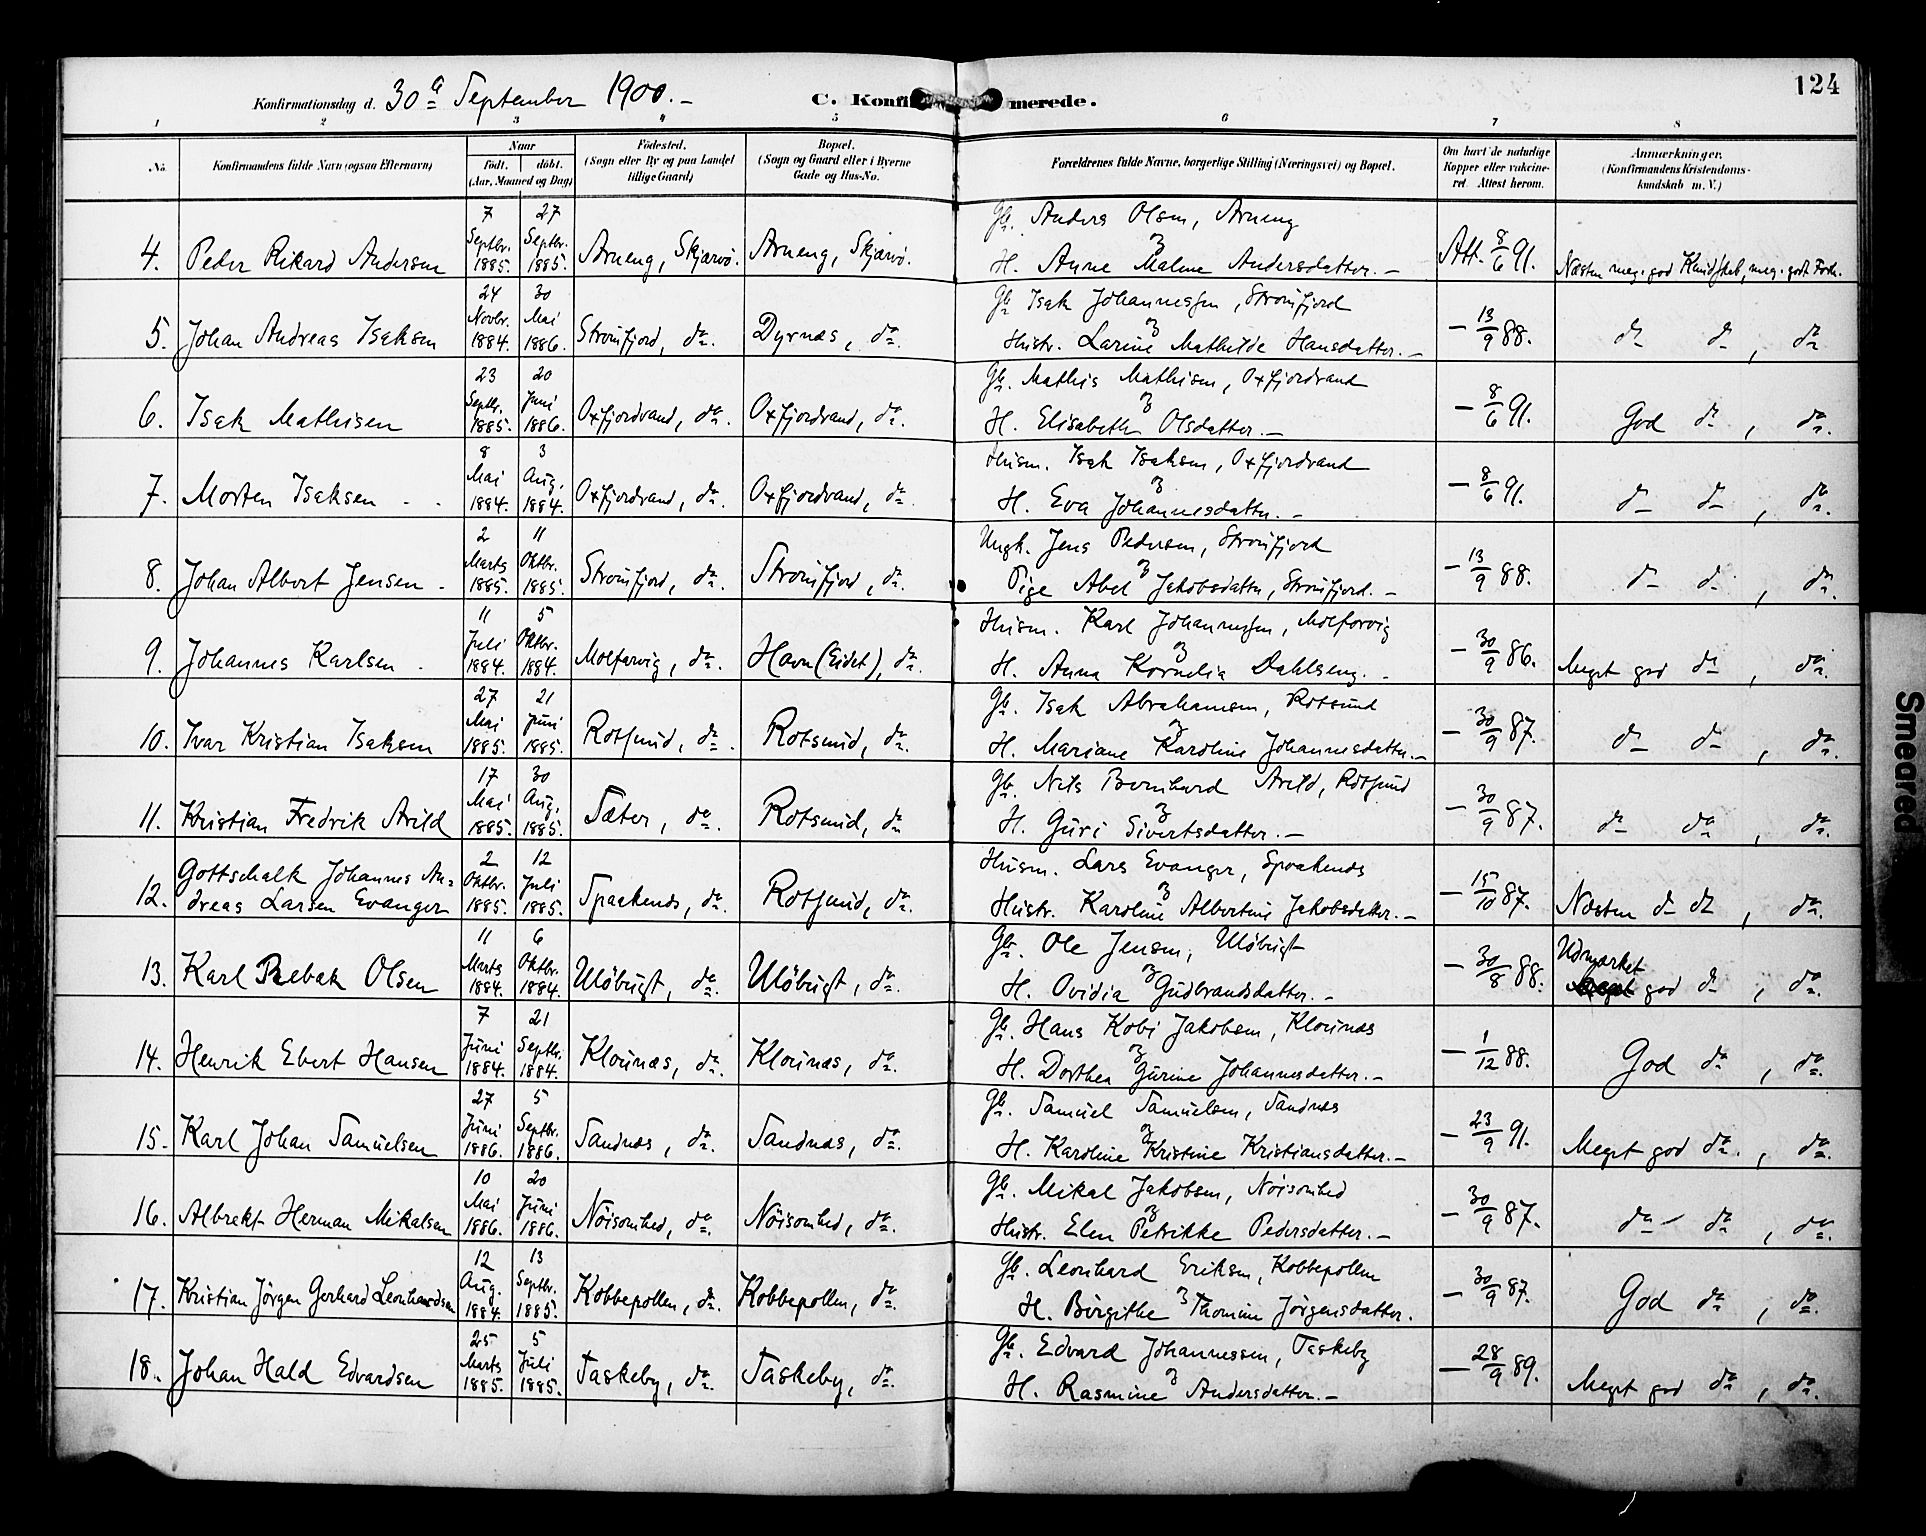 124
Konfirmationsdag d. 30te September 1900.-
C. Konfi merede.
1 2 3 4 5 6 7 8
No. Konfirmandens fulde Navn (ogsaa Efternavn) Naar født. døbt. (Aar, Maaned og Dag) Fødested. (Sogn eller By og paa Landet tillige Gaard) Bopæl. (Sogn og Gaard eller i Byerne Gade og Hus-No. Forældrenes fulde Navne, borgerlige Stilling (Næringsvei) og Bopæl. Om havt de naturlige Kopper eller vakcineret. Attest herom. Anmærkninger. (Konfirmandens Kristendomskundskab m. V.)
4. Peder Rikard Andersen 7 Septbr. 1885. 27 Septbr. 1885. Arneng, Skjærvö. Arneng, Skjærvö. Gb. Anders Olsen, Arneng
H. Anne Malene Andersdatter.- Att. 8/6 91. Næsten meg. god Kundskab, meg. godt Forh.
5. Johan Andreas Isaksen 24 Novbr. 1884. 30 Mai 1886. Straumfjord, do. Dyrnæs, do. Gb. Isak Johannessen, Straumfjord
Hustr. Larine Mathilde Hansdatter.- - 13/9 88. do do, do
6. Isak Mathisen 23 Septbr. 1885. 20 Juni 1886. Oxfjordvand, do. Oxfjordvand, do. Gb. Mathis Mathisen, Oxfjordvand
H. Elisabeth Olsdatter.- - 8/6 91. God do, do.
7. Morten Isaksen 8 Mai 1884. 3 Aug. 1884. Oxfjordvand, do. Oxfjordvand, do. Husm. Isak Isaksen, Oxfjordvand
H. Eva Johannesdatter.- - 8/6 91. do do, do.
8. Johan Albert Jensen 2 Marts 1885. 11 Oktbr. 1885. Straumfjord, do. Straumfjord, do. Ungk. Jens Pedersen, Straumfjord
Pige Abel Jakobsdatter, Straumfjord.- - 13/9 88. do do, do.
9. Johannes Karlsen 11 Juli 1884. 5 Oktbr. 1884. Molforvig, do. Havn (Eidet), do. Husm. Karl Johannessen, Molforvig
H. Anna Kornelia Dahlseng.- - 30/9 86. Meget god do, do.
10. Ivar Kristian Isaksen 27 Mai 1885. 21 Juni 1885. Rotsund, do. Rotsund, do. Gb. Isak Abrahamsen, Rotsund
H. Mariane Karoline Johannesdatter.- - 30/9 87. do do, do.
11. Kristian Fredrik Arild 17 Mai 1885. 30 Aug. 1885. Sæter, do. Rotsund, do Gb. Nils Bernhard Arild, Rotsund
H. Guri Sivertsdatter.- - 30/9 87. do do, do.
12. Gottschalk Johannes An-
dreas Larsen Evanger 2 Oktbr. 1885. 12 Juli 1885. Spaakenes, do. Rotsund, do. Husm. Lars Evanger, Spaakenes
Hustr. Karoline Albertine Jakobsdatter.- - 15/10 87. Næsten do do, do.
13. Karl Rebak Olsen 11 Marts 1884. 6 Oktbr. 1884. Ulöbugt, do. Ulöbugt, do. Gb. Ole Jensen, Ulöbugt
H. Ovidia Gudbrandsdatter.- - 30/8 88. Udmærket god do, do.
14. Henrik Ebert Hansen 7 Juni 1884. 21 Septbr. 1884. Klounæs, do. Klounæs, do. Gb. Hans Kobi Jakobsen, Klounæs
H. Dorthea Gurine Johannesdatter.- - 1/12 88. God do, do.
15. Karl Johan Samuelsen 27 Juni 1886. 5 Septbr. 1886. Sandnæs, do. Sandnæs, do. Gb. Samuel Samuelsen, Sandnæs
H. Karoline Kristine Kristiansdatter.- - 23/9 91. Meget god do., do.
16. Albrekt Herman Mikalsen 10 Mai 1886. 20 Juni 1886. Nöisomhed, do. Nöisomhed, do. Gb. Mikal Jakobsen, Nöisomhed
Hustr. Elen Petrikke Pedersdatter.- - 30/9 87. do do, do.
17. Kristian Jörgen Gerhard Leonhardsen 12 Aug. 1884. 13 Septbr. 1885. Kobbepollen, do. Kobbepollen, do. Gb. Leonhard Eriksen, Kobbepollen
H. Birgithe Thomine Jörgensdatter. - 30/9 87. God do, do.
18. Johan Hald Edvardsen 25 Marts 1885. 5 Juli 1885. Taskeby, do. Taskeby, do. Gb. Edvard Johannessen, Taskeby
H. Rasmine Andersdatter.- - 28/9 89. Meget god do, do.
Smeared